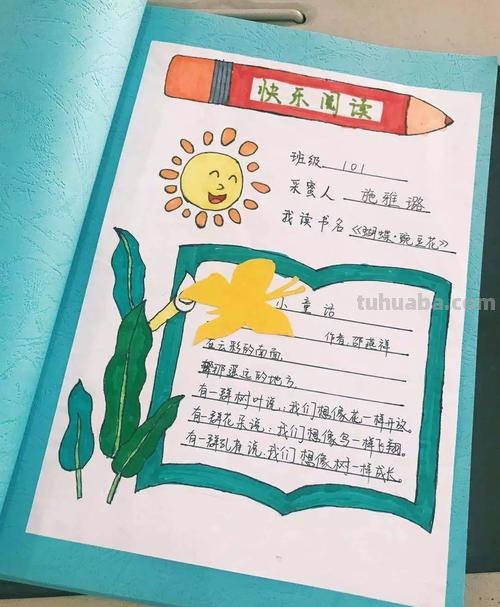 快乐阅读
班级 101
采蜜人 施雅璐
我读书名《蝴蝶·豌豆花》
tuhuaba.com
小童话
作者:邵燕祥
在云彩的南面,
那遥远的地方,
有一群树叶说:我们想像花一样开放。
有一群花朵说:我们想像鸟一样飞翔。
有一群孔雀说:我们想像树一样成长。